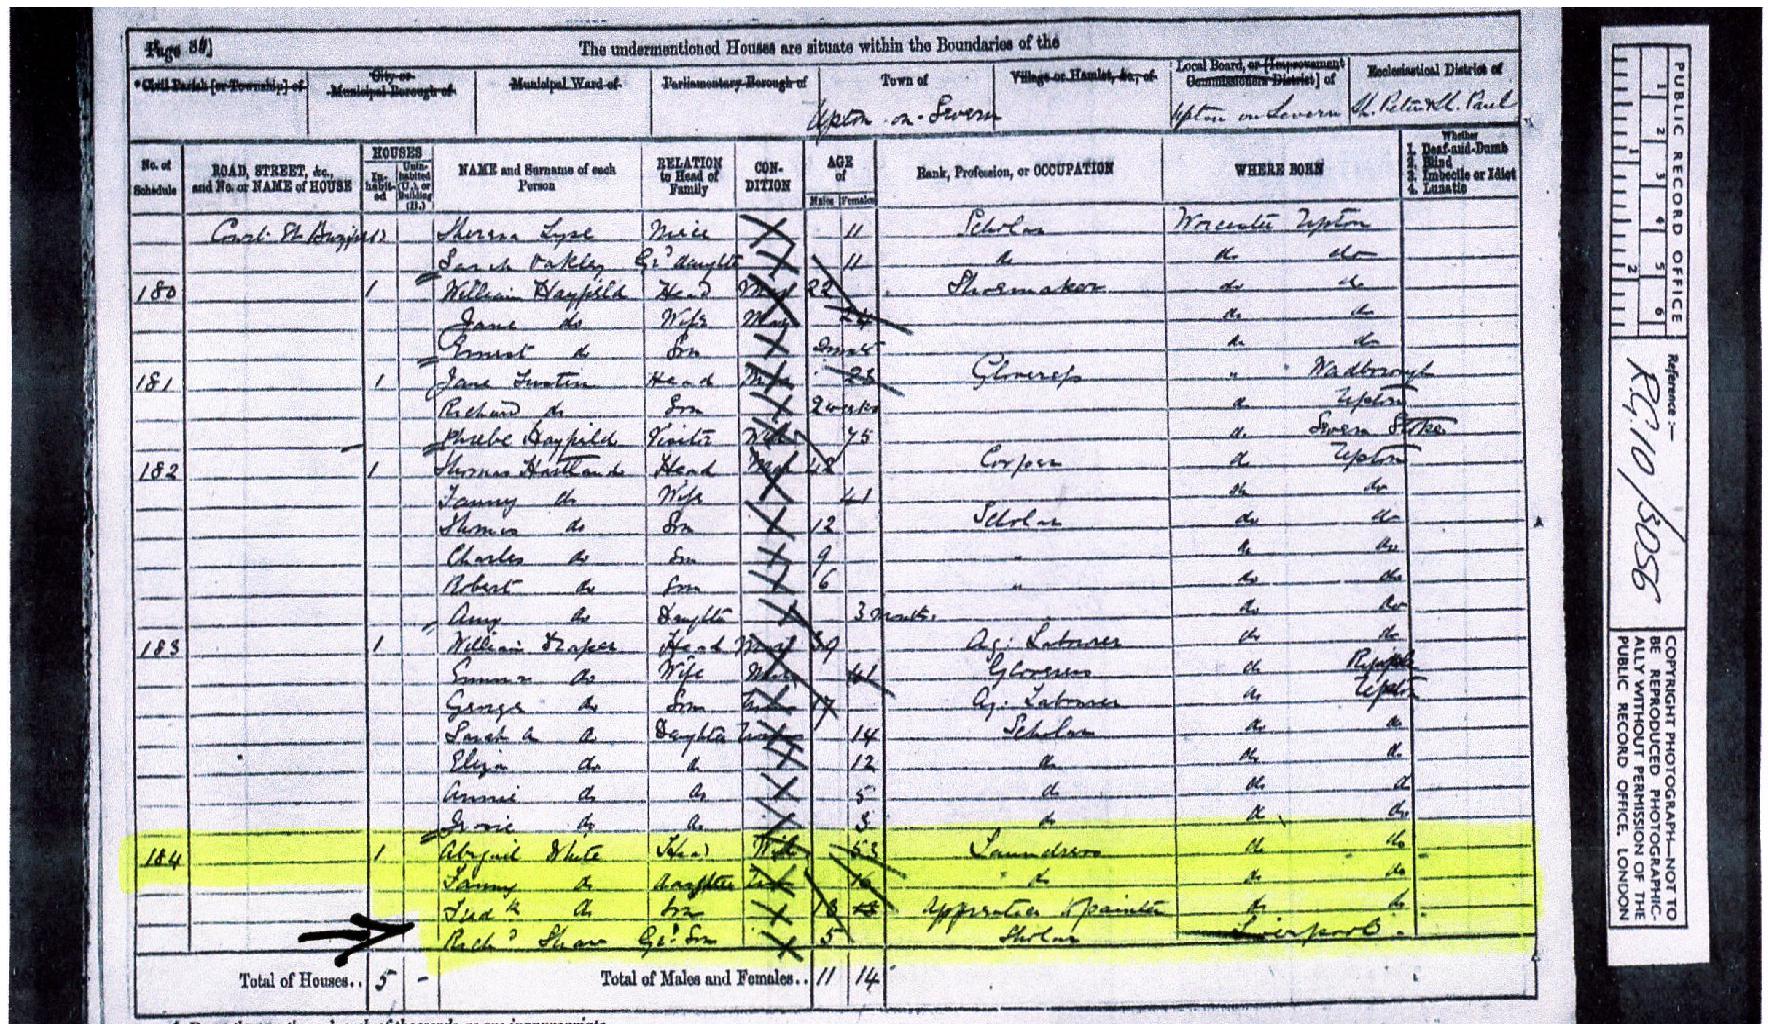 Page 39]
The undermentioned Houses are situate within the Boundaries of the
Civil Parish [or Township] of
City or Municipal Borough of
Municipal Ward of
Parliamentary Borough of
Town of
Village or Hamlet, &c., of
Local Board, or [Improvement Commissioners District] of
Ecclesiastical District of
Upton-on-Severn
Upton on Severn
St. Peter & St. Paul
No. of Schedule
ROAD, STREET, &c., and No. or NAME of HOUSE
HOUSES
In-habit-ed
Unin-habited (U.), or Building (B.)
NAME and Surname of each Person
RELATION to Head of Family
CON-DITION
AGE of
Males Females
Rank, Profession, or OCCUPATION
WHERE BORN
Whether
1. Deaf-and-Dumb
2. Blind
3. Imbecile or Idiot
4. Lunatic
Court St Theresa Niece 11 Scholar Worcester Upton
Sarah Oakley Gd daughter 11 do do do
180 1 William Hayfield Head Mar 22 Shoemaker do do
Jane do Wife Mar 24 do do
Ernest do Son do do
181 1 Jane Head 28 Gloveress " Wadborough
Richard do Son 2 weeks do Upton
Phoebe Hayfield Visitor Wid 75 do Severn Stoke
182 1 Thomas Hartlands Head Mar 48 Cooper do Upton
Fanny do Wife 41 do do
Thomas do Son 12 Scholar do do
Charles do Son 9 " do do
Robert do Son 6 " do do
Amy do Daughter 3 months do do
183 1 William Draper Head Mar 39 Ag: Labourer do do
Emma do Wife Mar 41 Gloveress do Ripple
George do Son 17 Ag: Labourer do Upton
Sarah A do Daughter 14 Scholar do do
Eliza do do 12 do do do
Annie do do 5 do do do
do do 3 do do do
184 1 Abigail White Head Wid 53 Laundress do do
Fanny do daughter 16 do do do
Fredk do Son 13 Apprentice painter do do
Richd Shaw Gd Son 5 Scholar Liverpool
Total of Houses.. 5 - Total of Males and Females.. 11 14
PUBLIC RECORD OFFICE
1 2 3 4 5 6
1 2
Reference:—
R.G. 10/3056
COPYRIGHT PHOTOGRAPH—NOT TO
BE REPRODUCED PHOTOGRAPHIC-
ALLY WITHOUT PERMISSION OF THE
PUBLIC RECORD OFFICE, LONDON